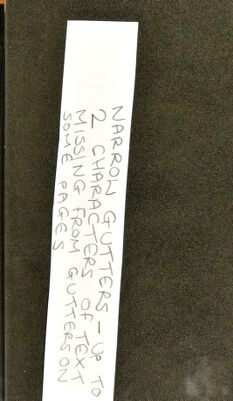 NARROW GUTTERS - UP TO
2 CHARACTERS OF TEXT
MISSING FROM GUTTERS ON
SOME PAGES